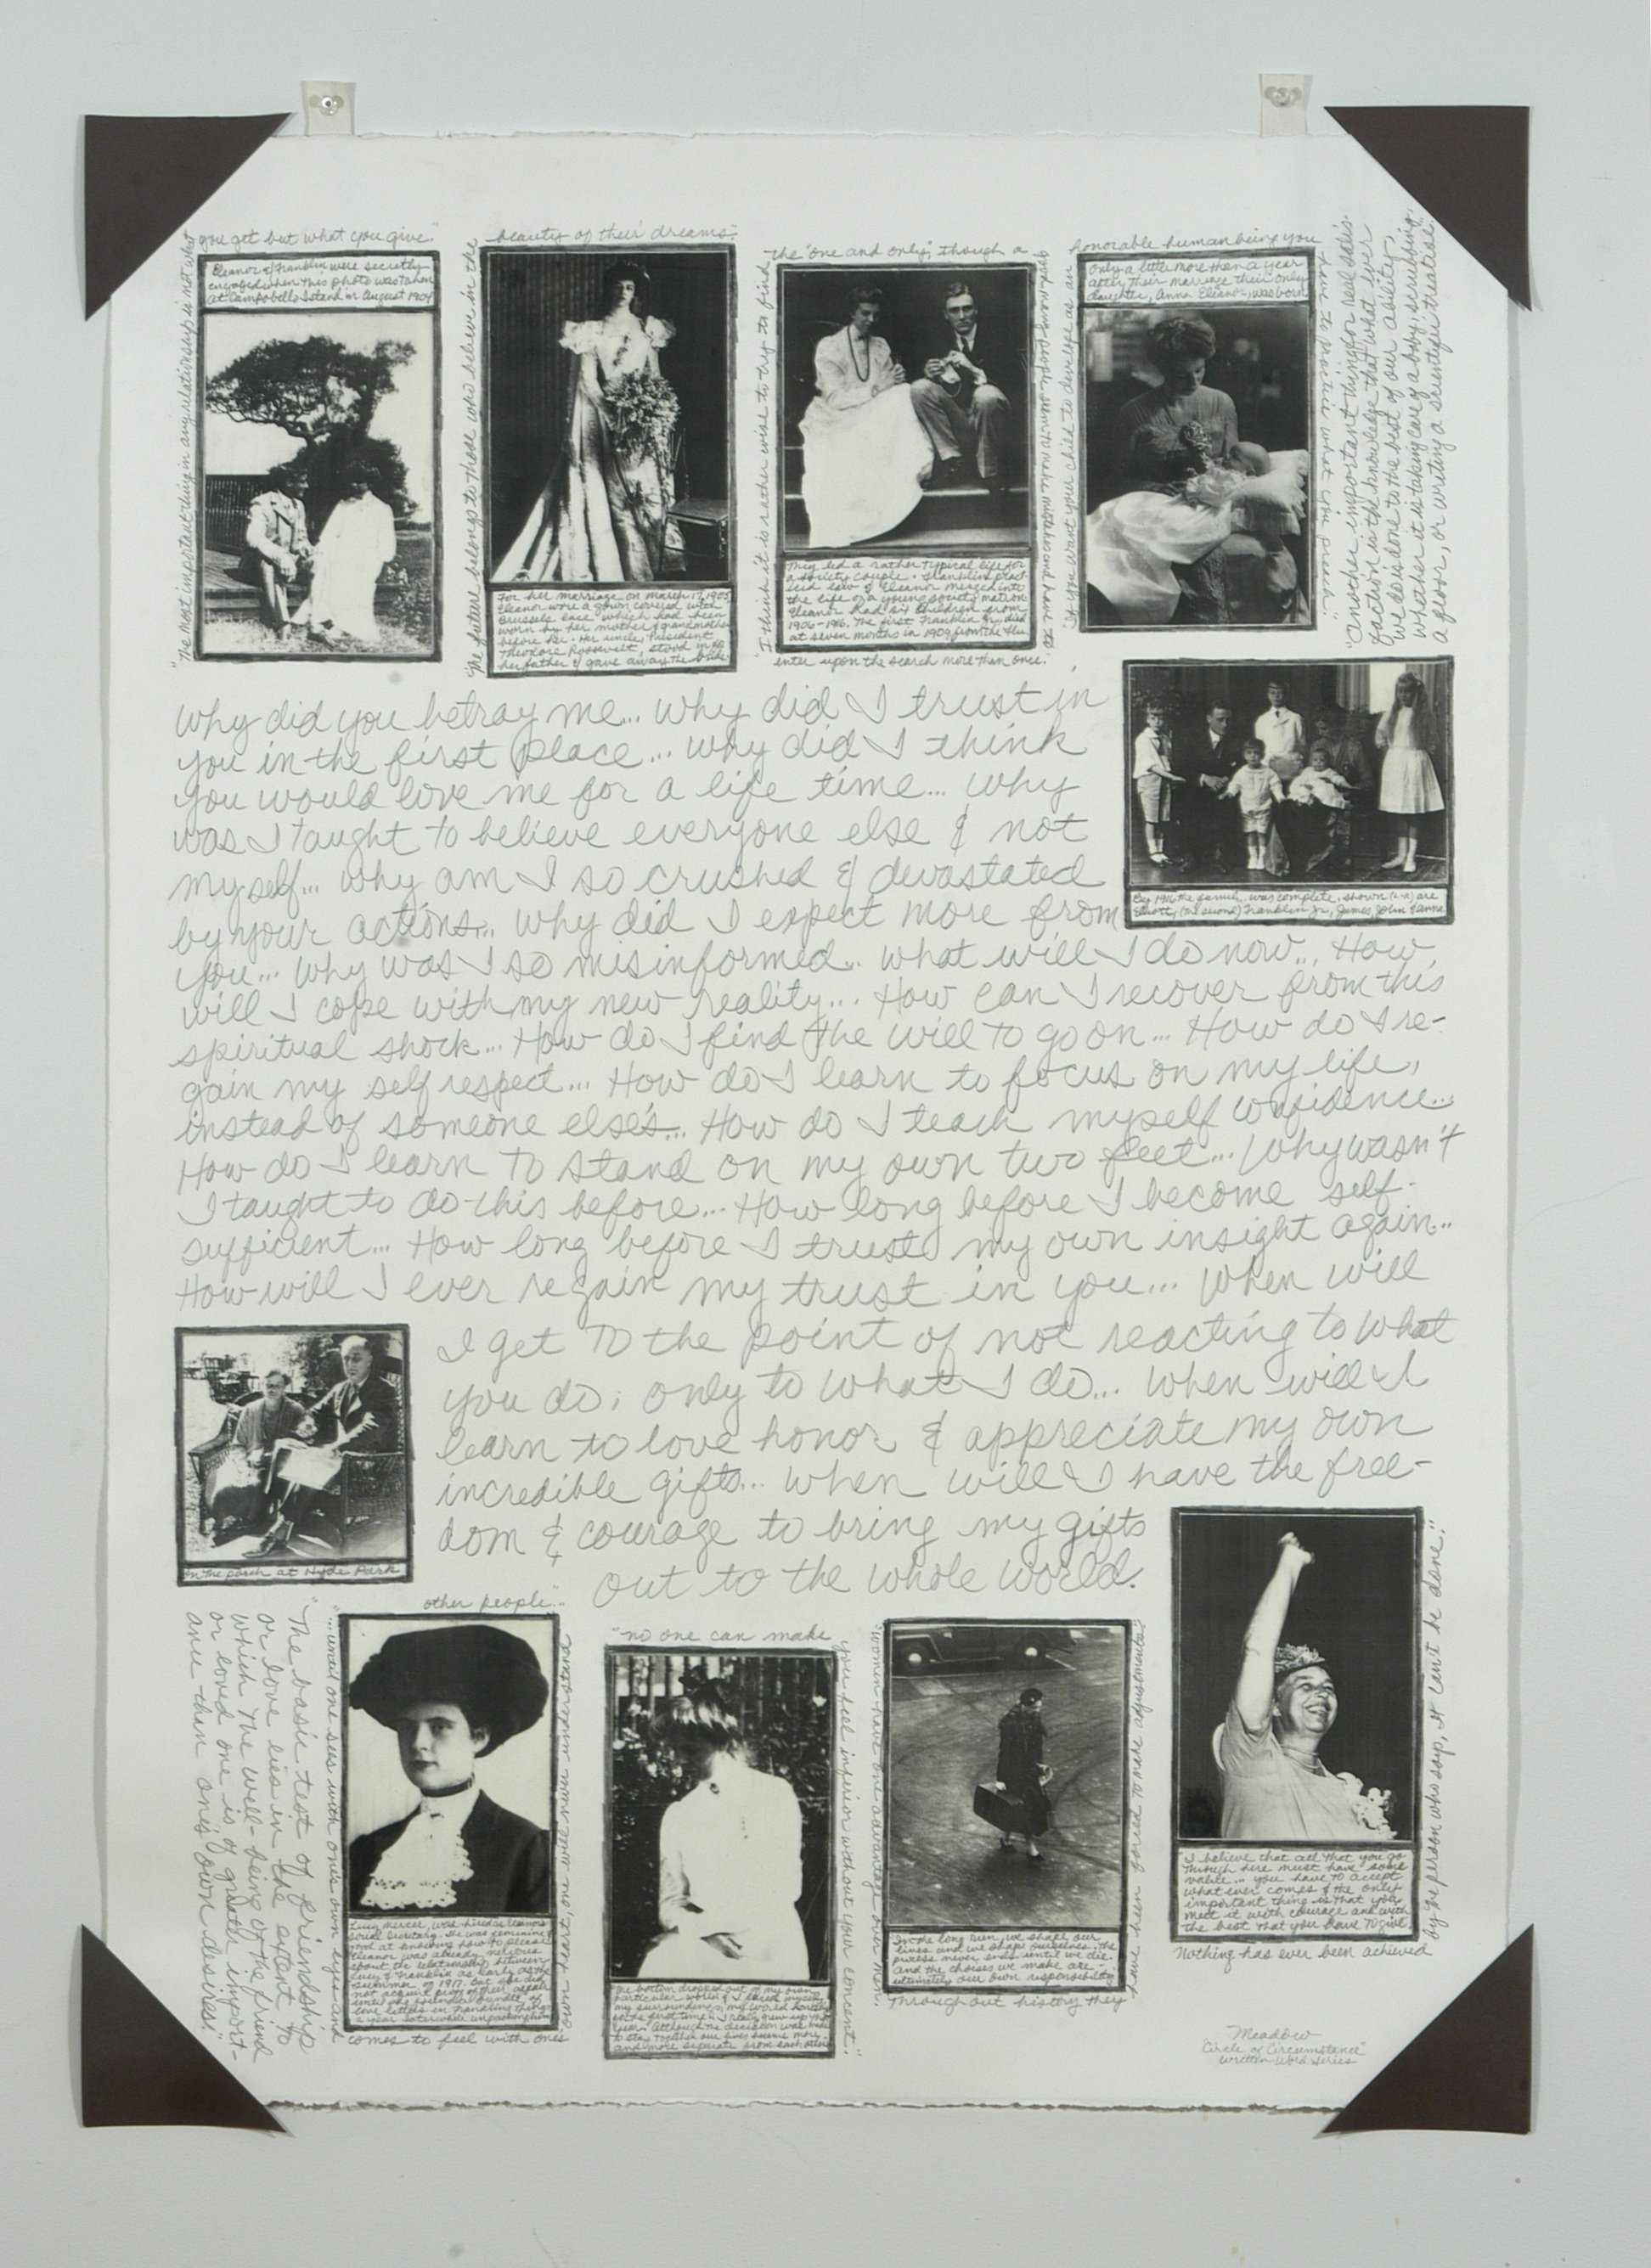 "The most important thing in any relationship is not what
you get but what you give."
Eleanor & Franklin were secretly
engaged when this photo was taken
at Campobello Island in August 1904
"The future belongs to those who believe in the
beauty of their dreams."
For her marriage on March 17, 1905
Eleanor wore a gown covered with
Brussels lace which had been
worn by her mother & grandmother
before her. Her uncle, President
Theodore Roosevelt, stood in for
her father & gave away the bride.
"I think it is rather wise to try to find
the "one and only", though a
good many people seem to make mistakes and have to
enter upon the search more than once."
They led a rather typical life for
a society couple. Franklin pract-
iced law & Eleanor merged into
the life of a young society matron
Eleanor had six children from
1906-1916. The first Franklin Jr. died
at seven months in 1909 from the flu.
"If you want your child to develop as an
honorable human being you
have to practice what you preach."
Only a little more than a year
after their marriage their only
daughter, Anna Eleanor, was born.
"Another important thing for real satis-
faction is the knowledge that what ever
we do is done to the best of our ability,
whether it is taking care of a baby, scrubbing
a floor, or writing a scientific treatise."
By 1916 the family was complete, shown (l-r) are
Elliott, (the second) Franklin Jr, James John & Anna
Why did you betray me... Why did I trust in
you in the first place... Why did I think
you would love me for a life time... Why
was I taught to believe everyone else & not
myself... Why am I so crushed & devastated
by your actions... Why did I expect more from
you... Why was I so misinformed... What will I do now... How
will I cope with my new reality... How can I recover from this
spiritual shock... How do I find the will to go on... How do I re-
gain my self respect... How do I learn to focus on my life,
instead of someone else's... How do I teach myself confidence...
How do I learn to stand on my own two feet... Why wasn't
I taught to do this before... How long before I become self-
sufficient... How long before I trust my own insight again...
How will I ever regain my trust in you... When will
I get to the point of not reacting to what
you do; only to what I do... When will I
learn to love honor & appreciate my own
incredible gifts... When will I have the free-
dom & courage to bring my gifts
out to the whole world.
On the porch at Hyde Park
"The basic test of friendship
or love lies in the extent to
which the well-being of the friend
or loved one is of greater import-
ance than one's own desires."
"...until one sees with one's own eyes and
comes to feel with one's
own heart, one will never understand
other people..."
Lucy Mercer, was hired as Eleanor's
social secretary. She was feminine &
good at knowing how to please.
Eleanor was already nervous
about the relationship between
Lucy & Franklin as early as the
summer of 1917. But she did
not acquire proof of their affair
until she found a bundle of
love letters in Franklin's things
a year later while unpacking him
"no one can make
you feel inferior without your concent."
The bottom dropped out of my own
particular world & I faced myself,
my surroundings, my world honestly
for the first time. I really grew up that
year. Although the decision was made
to stay together our lives became more
and more separate from each other.
"Women have one advantage over men.
Throughout history they
have been forced to make adjustments."
"In the long run, we shape our
lives and we shape ourselves. The
process never ends until we die.
And the choises we make are
ultimately our own responsibility.
I believe that all that you go
through here must have some
value... you have to accept
what ever comes & the only
important thing is that you
meet it with courage and with
the best that you have to give.
Nothing has ever been achieved
by the person who says, it can't be done."
Meadow
"Circle of Circumstance"
Written Word Series